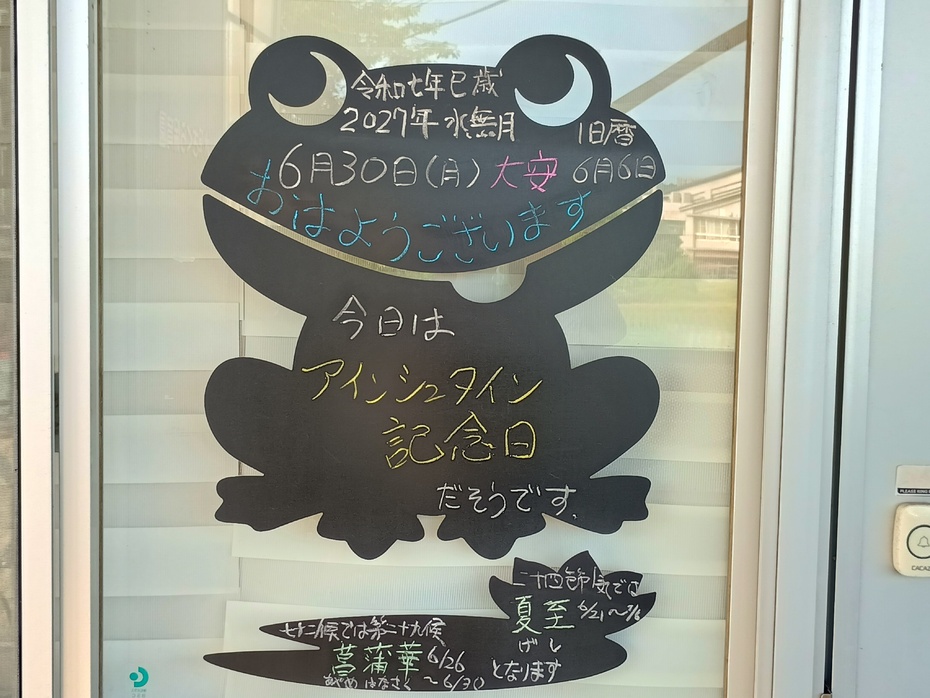 令和七年巳歳
2027年 水無月
旧暦
6月30日(月)大安 6月6日
おはようございます
今日は
アインシュタイン
記念日
だそうです。
二十四節気では
夏至 6/21〜7/6
げし
となります
七十二候では第二十九候
菖蒲華 6/26
あやめ はなさく 〜6/30